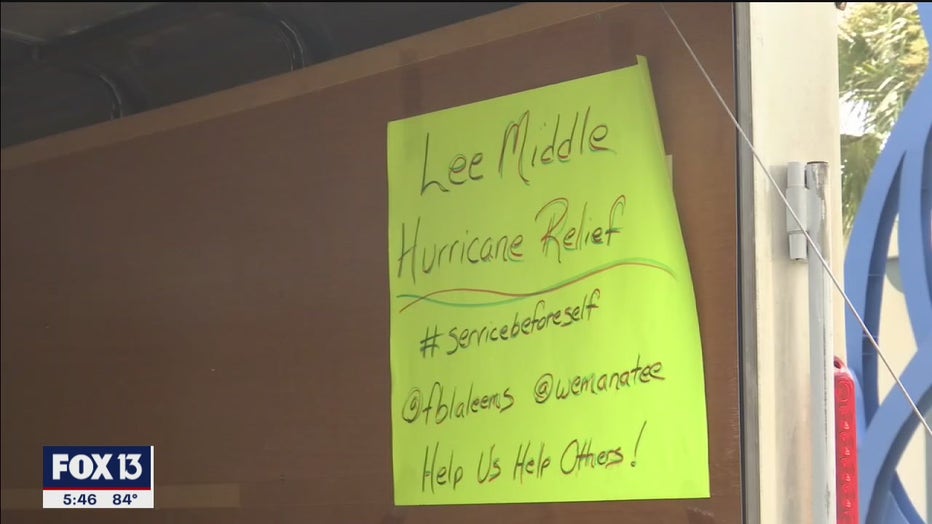 Lee Middle
Hurricane Relief
#servicebeforeself
@fblaleems @wemanatee
Help Us Help Others!
FOX 13
5:46 84°